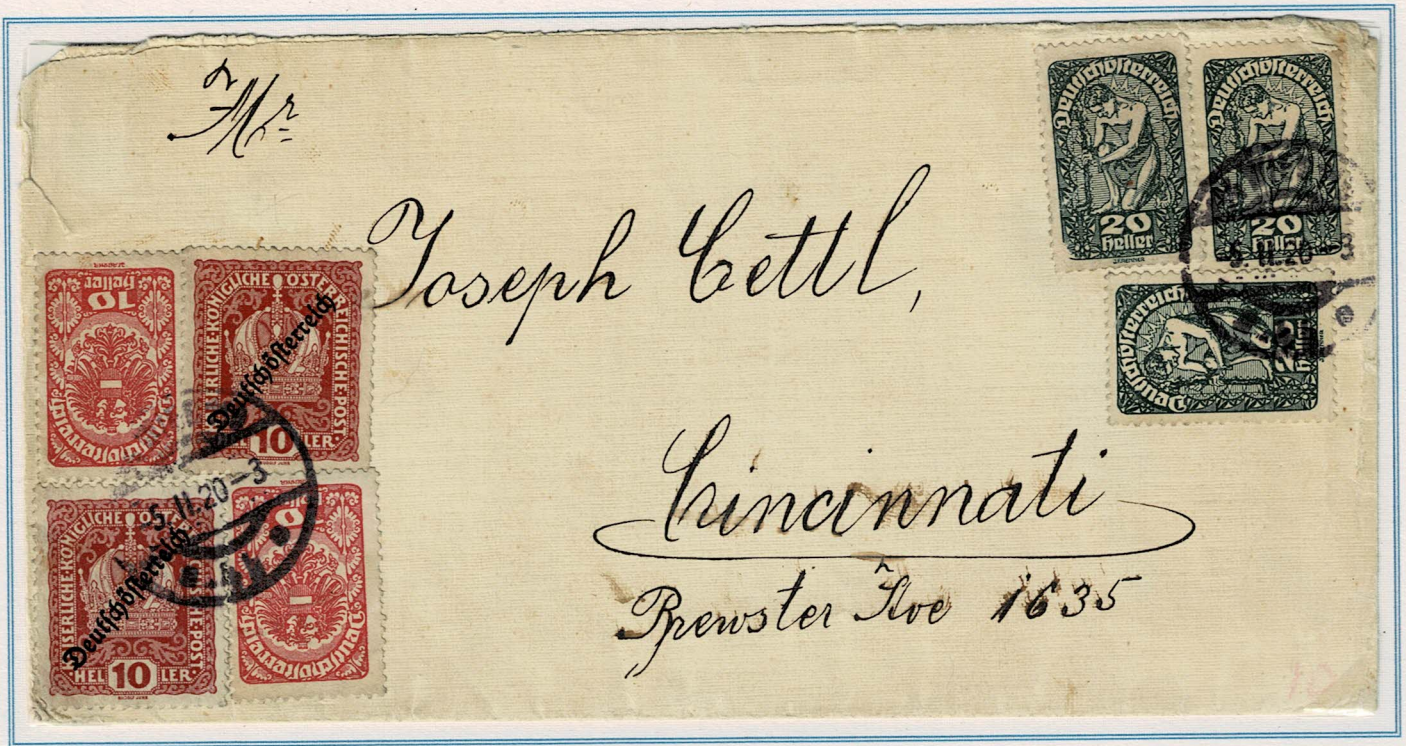 Mr
Joseph Cettl,
Cincinnati
Brewster Ave 1635
Deutschösterreich
20
Heller
Deutschösterreich
20
Heller
5.II.20-3
Deutschösterreich
Heller
10
Heller
Deutschösterreich
KAISERLICHE·KÖNIGLICHE ÖSTERREICHISCHE·POST
Deutschösterreich
HEL 10 LER
5.II.20-3
KAISERLICHE·KÖNIGLICHE ÖSTER
SE·POST
Deutschösterreich
HEL 10 LER
Deutschösterreich